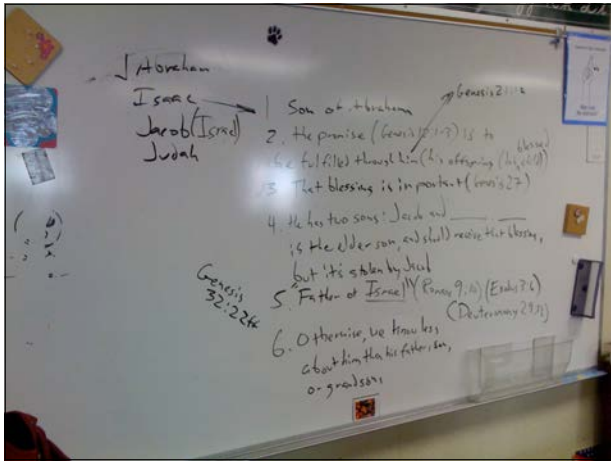 Abraham
Isaac
Jacob (Israel)
Judah
1 Son of Abraham
Genesis
2. The promise (Genesis 12:1-3) is to
blessed
be fulfilled through him (his offspring
3. That blessing is important (Genesis 27)
4. He has two sons: Jacob and ____. ____
is the elder son, and should receive that blessing,
but it's stolen by Jacob
5. "Father of Israel" (Romans 9:10) (Exodus 3:6)
(Deuteronomy
Genesis
32:22ff
6. Otherwise, we know less
about him than his father, son,
or grandsons